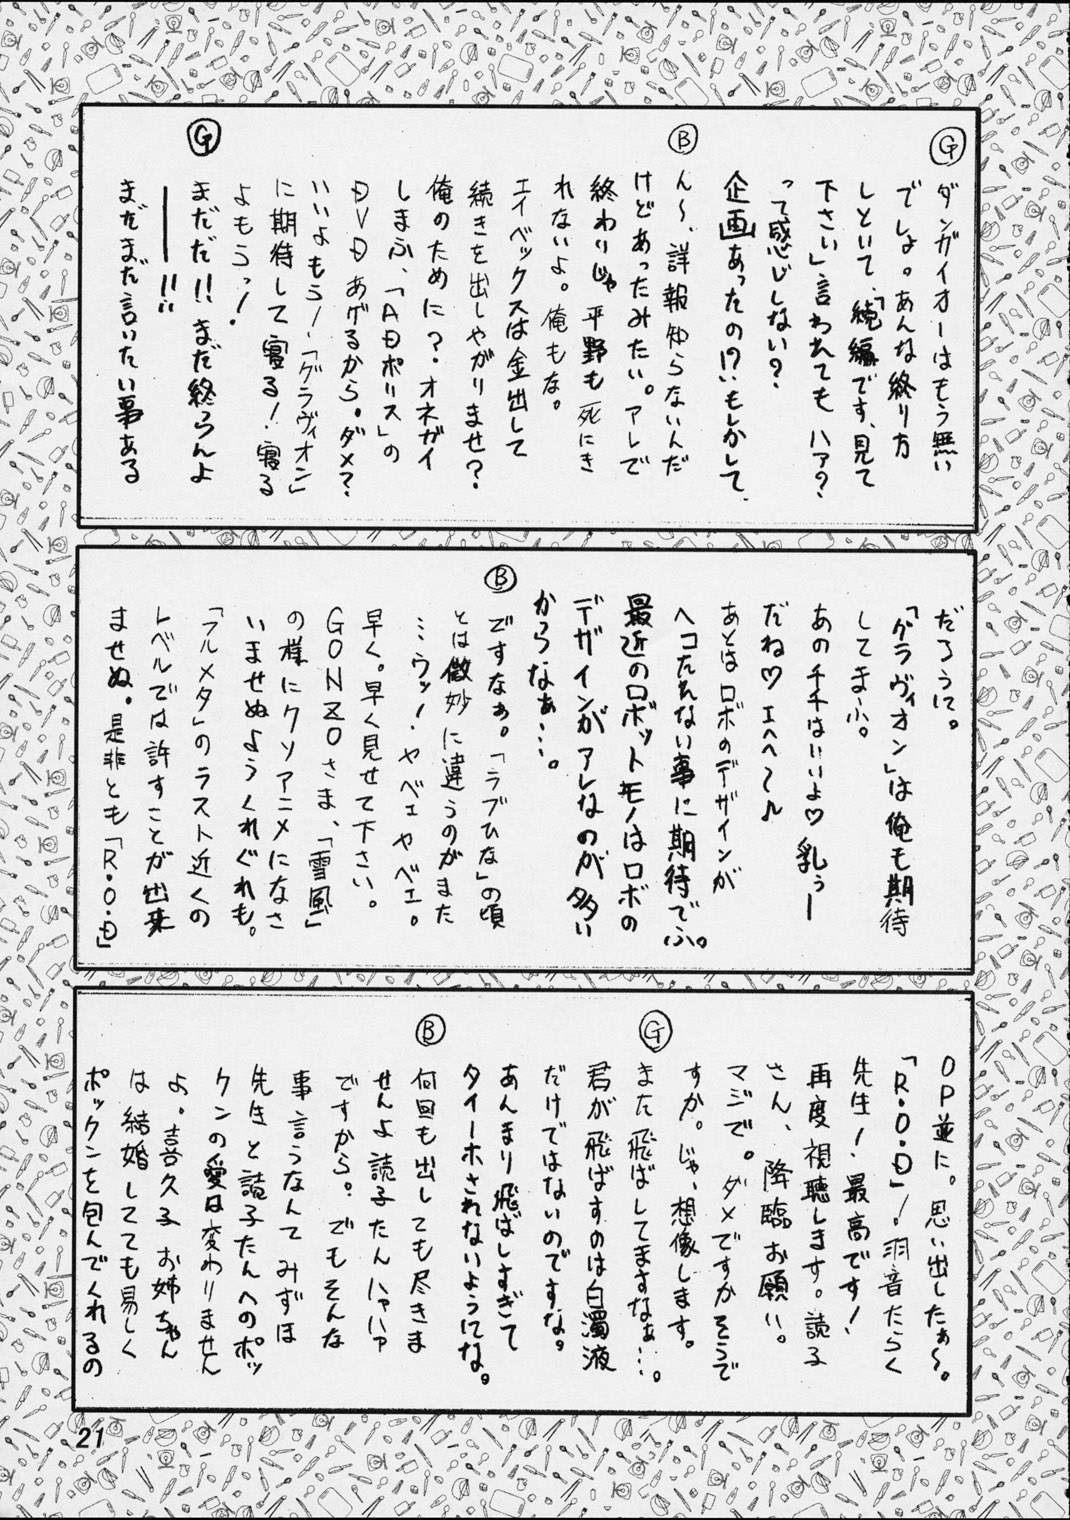 Ⓖ
ダンガイオーはもう無い
でしょ。あんな終り方
しといて、「続編です、見て
下さい」言われても ハァ?
って感じしない?
企画あったの!?もしかして、
Ⓑ
ん〜、詳報知らないんだ
けどあったみたい。アレで
終わりじゃ 平野も死にき
れないよ。俺もな。
エイベックスは金出して
続きを出しやがりませ?
俺のために?オネガイ
しまふ、「ADポリス」の
DVDあげるから。ダメ?
いいよもう!「グラヴィオン」
に期待して寝る!寝る
よもうっ!
Ⓖ
まだだ!!まだ終らんよ
――!!
まだまだ言いたい事ある
だろうに。
「グラヴィオン」は俺も期待
してまふ。
あの千千はいいよ♡乳ぅー
だね♡エヘヘ〜♪
あとはロボのデザインが
ヘコたれない事に期待でふ。
最近のロボットモノはロボの
デザインがアレなのが多い
からなぁ…。
Ⓑ
ですなぁ。「ラブひな」の頃
とは微妙に違うのがまた
…ウッ!ヤベェヤベエ。
早く。早く見せて下さい。
GONZOさま、「雪風」
の様にクソアニメになさ
いませぬようくれぐれも。
「フルメタ」のラスト近くの
レベルでは許すことが出来
ませぬ。是非とも「R・O・D」
OP並に。思い出したぁ〜。
「R・O・D」!羽音たらく
先生!最高です!
再度視聴します。読子
さん、降臨お願い。
マジで。ダメですかそうで
すか。じゃ、想像します。
Ⓖ
また飛ばしてますなぁ…。
君が飛ばすのは白濁液
だけではないのですな。
あんまり飛ばしすぎて
タイーホされないようにな。
Ⓑ
何回も出しても尽きま
せんよ読子たんハァハァ
ですから。でもそんな
事言うなんてみずほ
先生と読子たんへのポッ
クンの愛は変わりません
よ。喜久子お姉ちゃん
は結婚してても易しく
ポックンを包んでくれるの
21